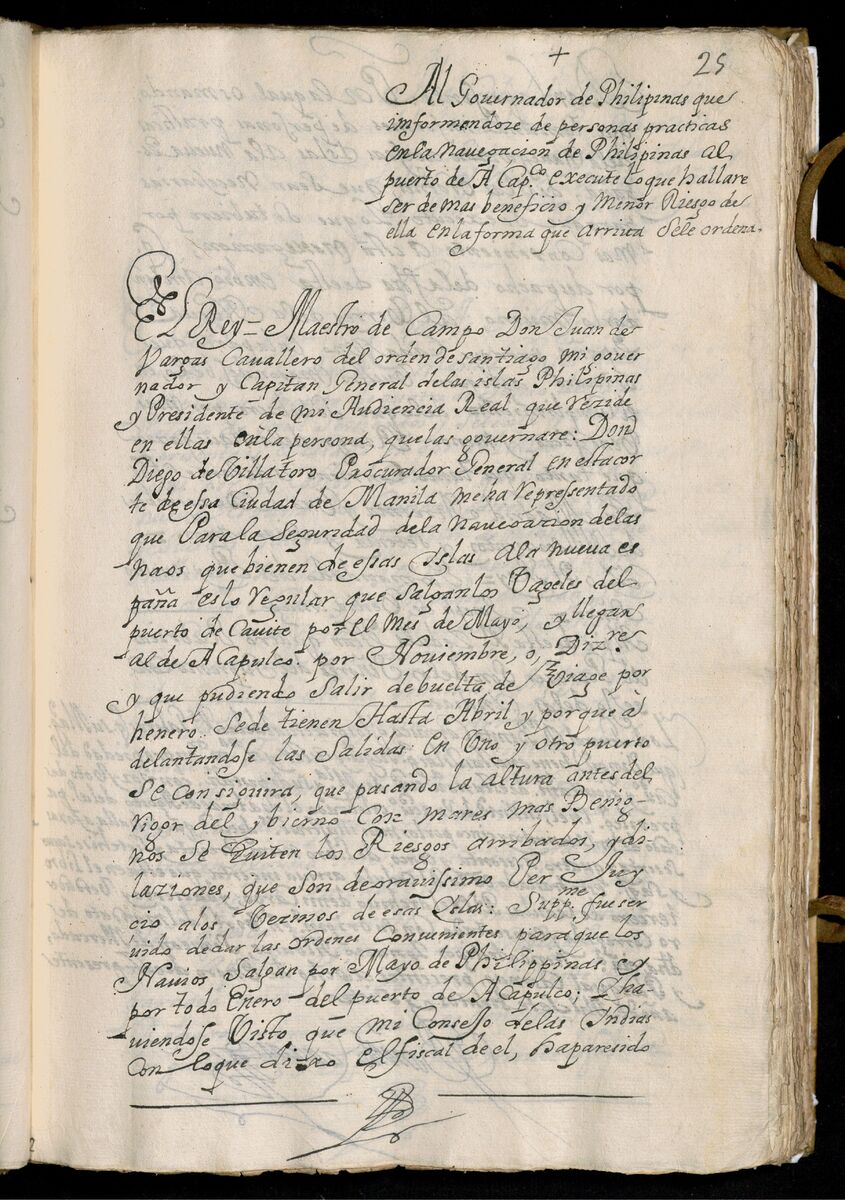 +
25
Al Gouernador de Philipinas que
imformendoze de personas practicas
en la nauegaçion de Philipinas al
puerto de A Cap.co execute lo que hallare
ser de mas beneficio y Menor Riesgo de
ella en la forma que arriua sele ordena.
El Rey = Maestro de Campo Don Juan de
Vargas Cauallero del orden de santiago mi gouer
nador y Capitan General de las islas Philipinas
y Presidente de mi Audiencia Real que rezide
en ellas o la persona, que las gouernare: Don
Diego de Villatoro Procurador General en esta cor
te de essa Ciudad de Manila me ha repressentado
que Para la seguridad de la nauegazion de las
naos que bienen de essas Islas a la nueua es
paña es lo regular que salgan los Vageles del
puerto de Cauite por el mes de Mayo, y llegan
al de A Capulco por Nouiembre, o, Diz.re
y que pudiendo salir de buelta de Viage por
henero se detienen Hasta Abril y porque a
delantandose las salidas en Vno y otro puerto
se consiguira, que pasando la altura antes del
rigor del ybierno con mares mas Benig-
nos se Quiten los Riesgos arribados, y di
laziones, que son de grauissimo Per Juy
cio a los Vezinos de esas Islas: Supp.me fuer ser
uido de dar las ordenes Conuinientes para que los
Nauios salgan por Mayo de Philippinas y
por todo Enero del puerto de A Capulco; Y ha-
uiendose Visto que mi Consejo de las Indias
con lo que dixo el fiscal de el, ha paresido